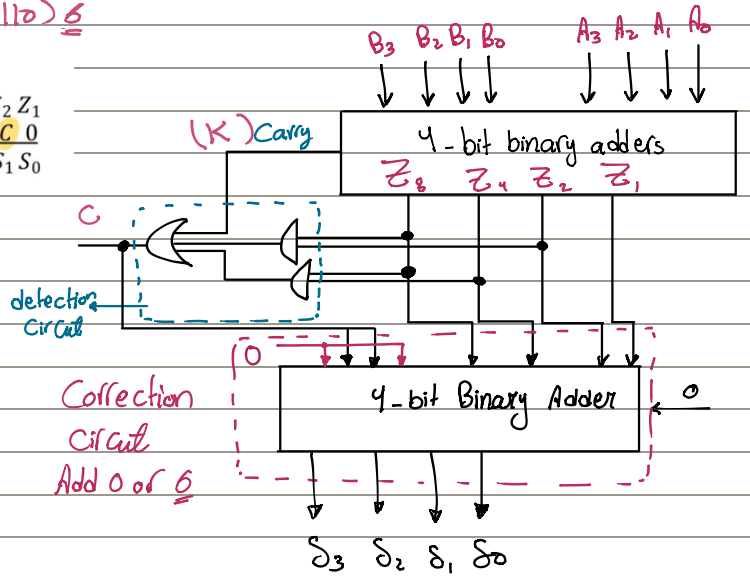 110) 6
2 Z1
C 0
S1 S0
B3 B2 B1 B0 A3 A2 A1 A0
(K) Carry
4-bit binary adders
Z8 Z4 Z2 Z1
C
detection
Circuit
0
Correction
Circuit
Add 0 or 6
4-bit Binary Adder
0
S3 S2 S1 S0